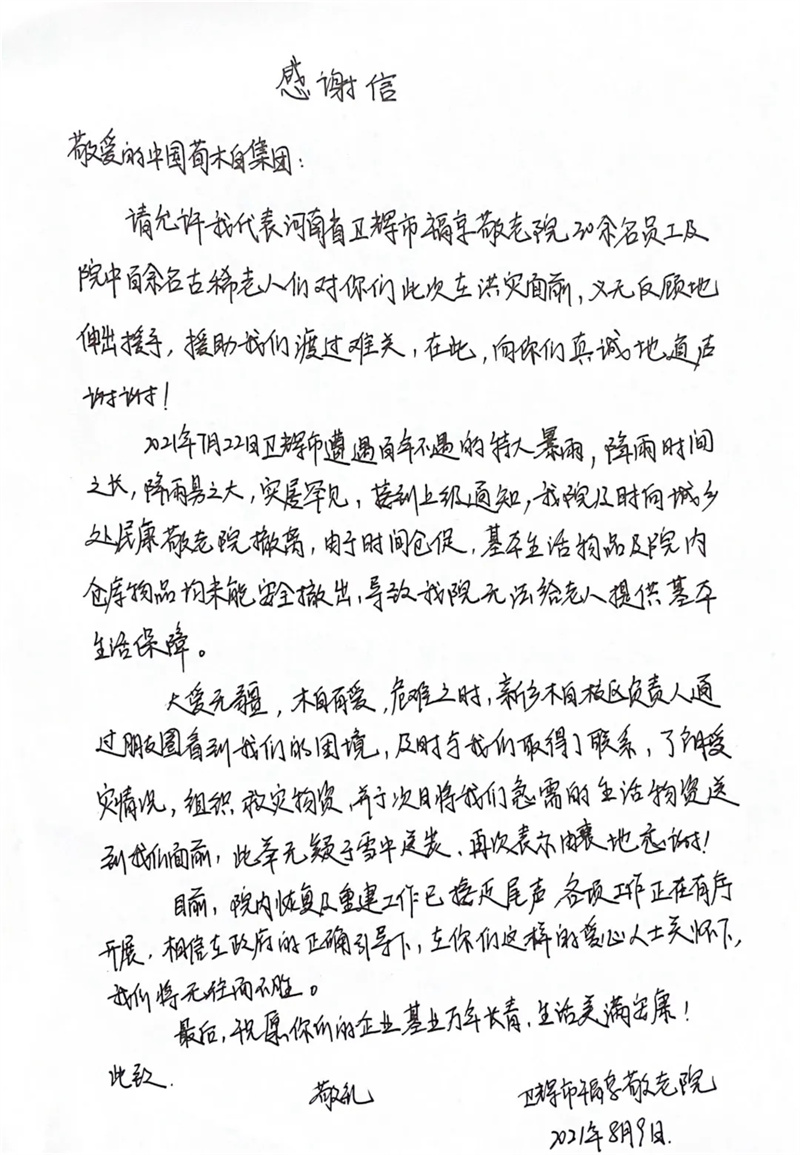 感谢信
敬爱的中国葡木自集团：
请允许我代表河南省卫辉市福享敬老院30余名员工及
院中百余名古稀老人们对你们此次在洪灾面前，义无反顾地
伸出援手，援助我们渡过难关，在此，向你们真诚地道声
谢谢！
2021年7月22日卫辉市遭遇百年不遇的特大暴雨，降雨时间
之长，降雨量之大，实属罕见，接到上级通知，我院及时向城乡
处民康敬老院撤离，由于时间仓促，基本生活物品及院内
仓库物品均未能安全撤出，导致我院无法给老人提供基本
生活保障。
大爱无疆，木自有爱，危难之时，新乡木自校区负责人通
过朋友圈看到我们的困境，及时与我们取得了联系，了解受
灾情况，组织救灾物资，并于次日将我们急需的生活物资送
到我们面前，此举无疑于雪中送炭、再次表示由衷地感谢！
目前，院内恢复及重建工作已接近尾声 各项工作正在有序
开展，相信在政府的正确引导下，在你们这样的爱心人士关怀下，
我们将无往而不胜。
最后，祝愿你们的企业基业万年长青，生活美满安康！
此致
敬礼
卫辉市福享敬老院
2021年8月9日.